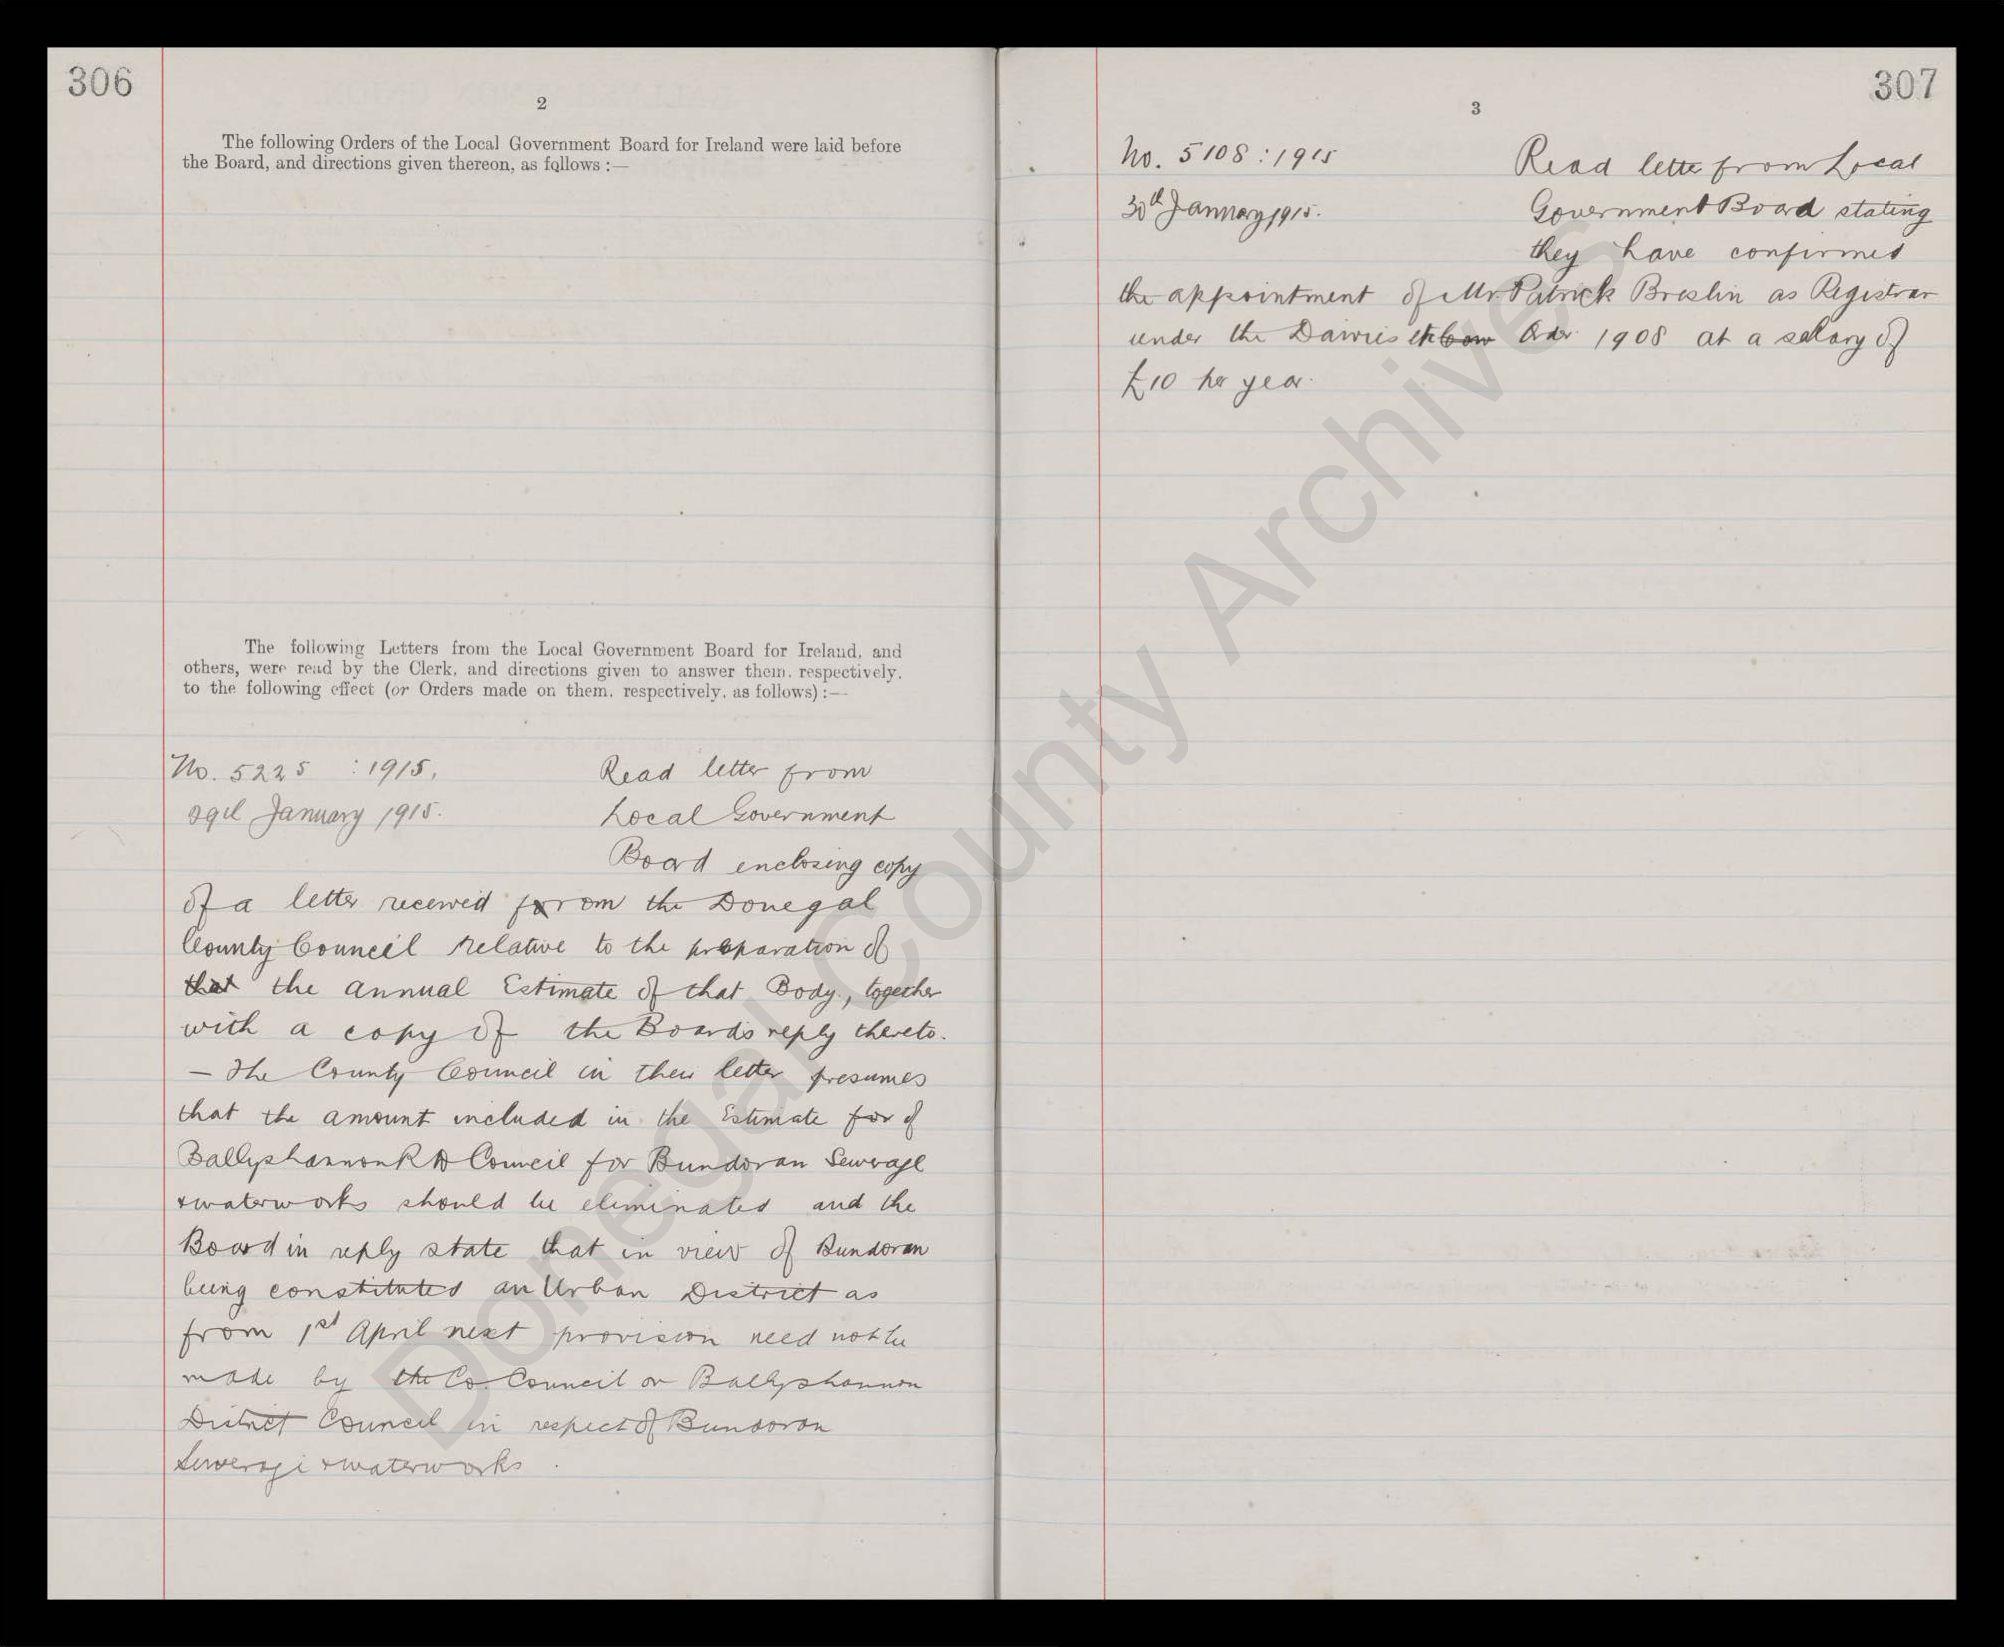 306
2
The following Orders of the Local Government Board for Ireland were laid before
the Board, and directions given thereon, as follows :—
The following Letters from the Local Government Board for Ireland, and
others, were read by the Clerk, and directions given to answer them, respectively,
to the following effect (or Orders made on them, respectively, as follows) :—
No. 5225 : 1915,
January 1915.
Read letter from
Local Government
Board enclosing copy
of a letter received from the Donegal
County Council relative to the preparation of
that the annual Estimate of that Body, together
with a copy of the Boards reply thereto.
— The County Council in their letter presumes
that the amount included in the Estimate for of
Ballyshannon R D Council for Bundoran Sewerage
+ waterworks should be eliminated and the
Board in reply state that in view of Bundoran
being constituted an Urban District as
from 1st April next provision need not be
made by the Co. Council or Ballyshannon
District Council in respect of Bundoran
Sewerage + waterworks
307
3
No. 5108 : 1915
30th January 1915.
Read letter from Local
Government Board stating
they have confirmed
the appointment of Mr. Patrick Breslin as Registrar
under the Dairies Order 1908 at a salary of
£10 per year.
Donegal County Archives